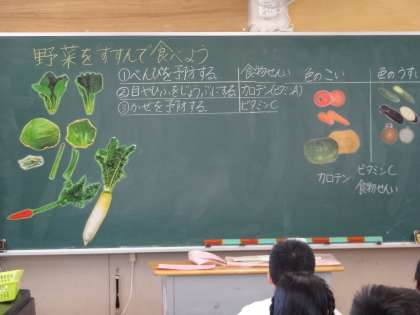 野菜をすすんで食べよう
①べんぴを予防する 食物せんい
②目やひふをじょうぶにする カロテン(ビタミンA)
③かぜを予防する ビタミンC
色のこい
色のうす
カロテン
ビタミンC
食物せんい